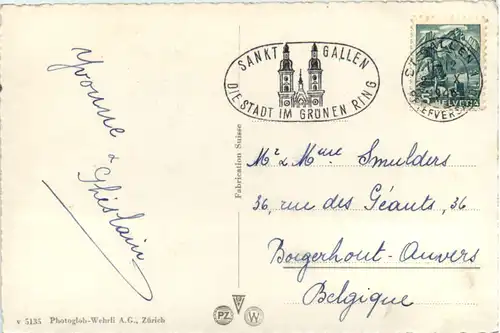 Yvonne & Ghislain
SANKT GALLEN
DIE STADT IM GRÜNEN RING
ST. GALLEN
BRIEFVERS
HELVETIA
Fabrication Suisse
Mr & Mme Smulders
36, rue des Géants, 36
Borgerhout-Anvers
Belgique
v 5135 Photoglob-Wehrli A.G., Zürich
PZ
W